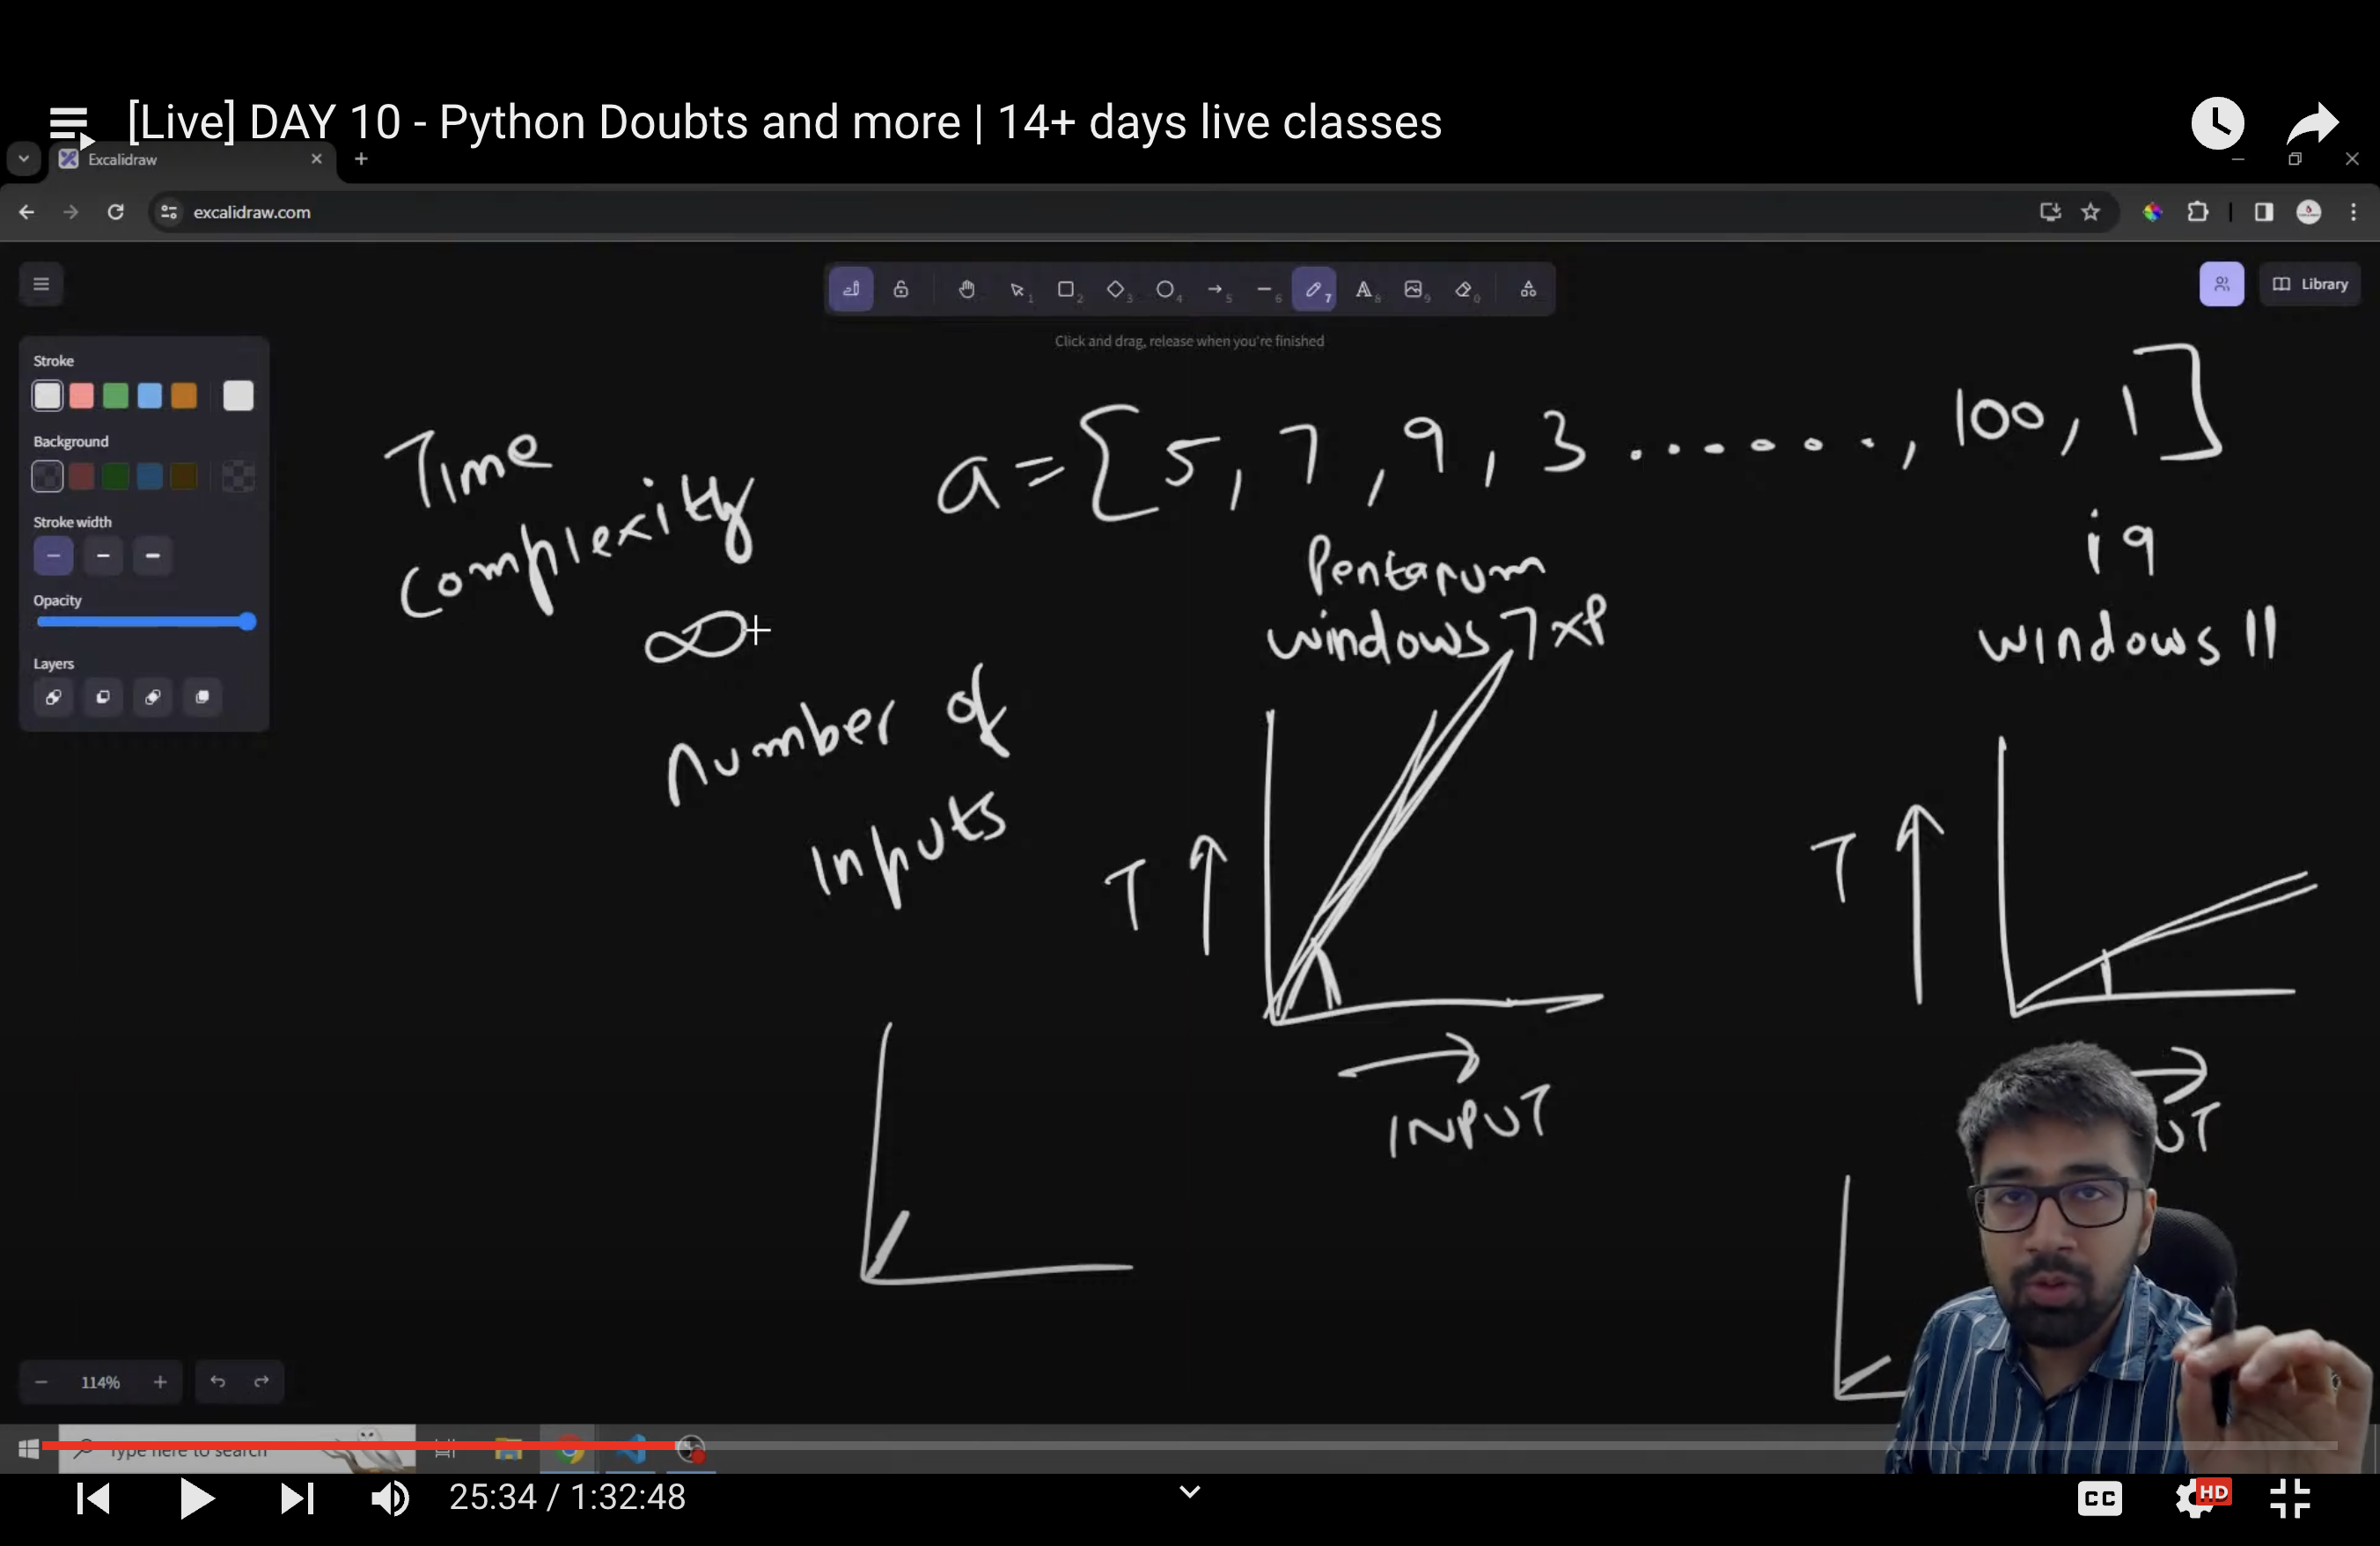 [Live] DAY 10 - Python Doubts and more | 14+ days live classes
Excalidraw
excalidraw.com
1
2
3
4
5
6
7
8
9
0
Library
Click and drag, release when you're finished
Stroke
Background
Stroke width
Opacity
Layers
Time
complexity
∞
number of
inputs
a = [5, 7, 9, 3 ........, 100, 1]
Pentapum
windows 7 xp
i9
windows 11
T
INPUT
T
UT
114%
Type here to search
25:34 / 1:32:48
CC
HD